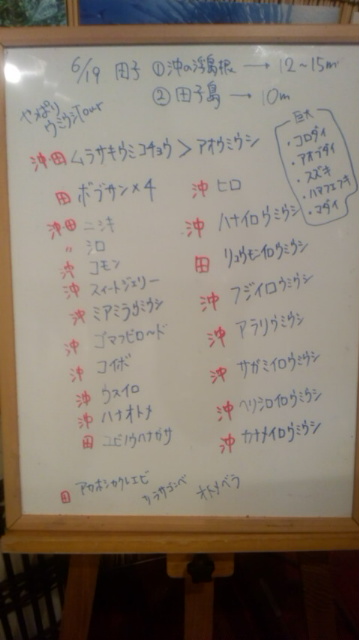 6/19 田子 ①沖の浮島根 → 12~15m
②田子島 → 10m
やっぱり
ウミウシTour
沖田 ムラサキウミコチョウ > アオウミウシ
田 ボブサン×4
沖田 ニシキ
〃 シロ
沖 コモン
沖 スイートジェリー
沖 ミアミラウミウシ
沖 ゴマフビロード
沖 コイボ
沖 ウスイロ
沖 ハナオトメ
田 ユビノウハナガサ
沖 ヒロ
沖 ハナイロウミウシ
田 リュウモンイロウミウシ
沖 フジイロウミウシ
沖 アラリウミウシ
沖 サガミイロウミウシ
沖 ヘリシロイロウミウシ
沖 カナメイロウミウシ
巨大
・コロダイ
・アオブダイ
・スズキ
・ハマフエフキ
・マダイ
田 アカホシカクレエビ
オトメベラ